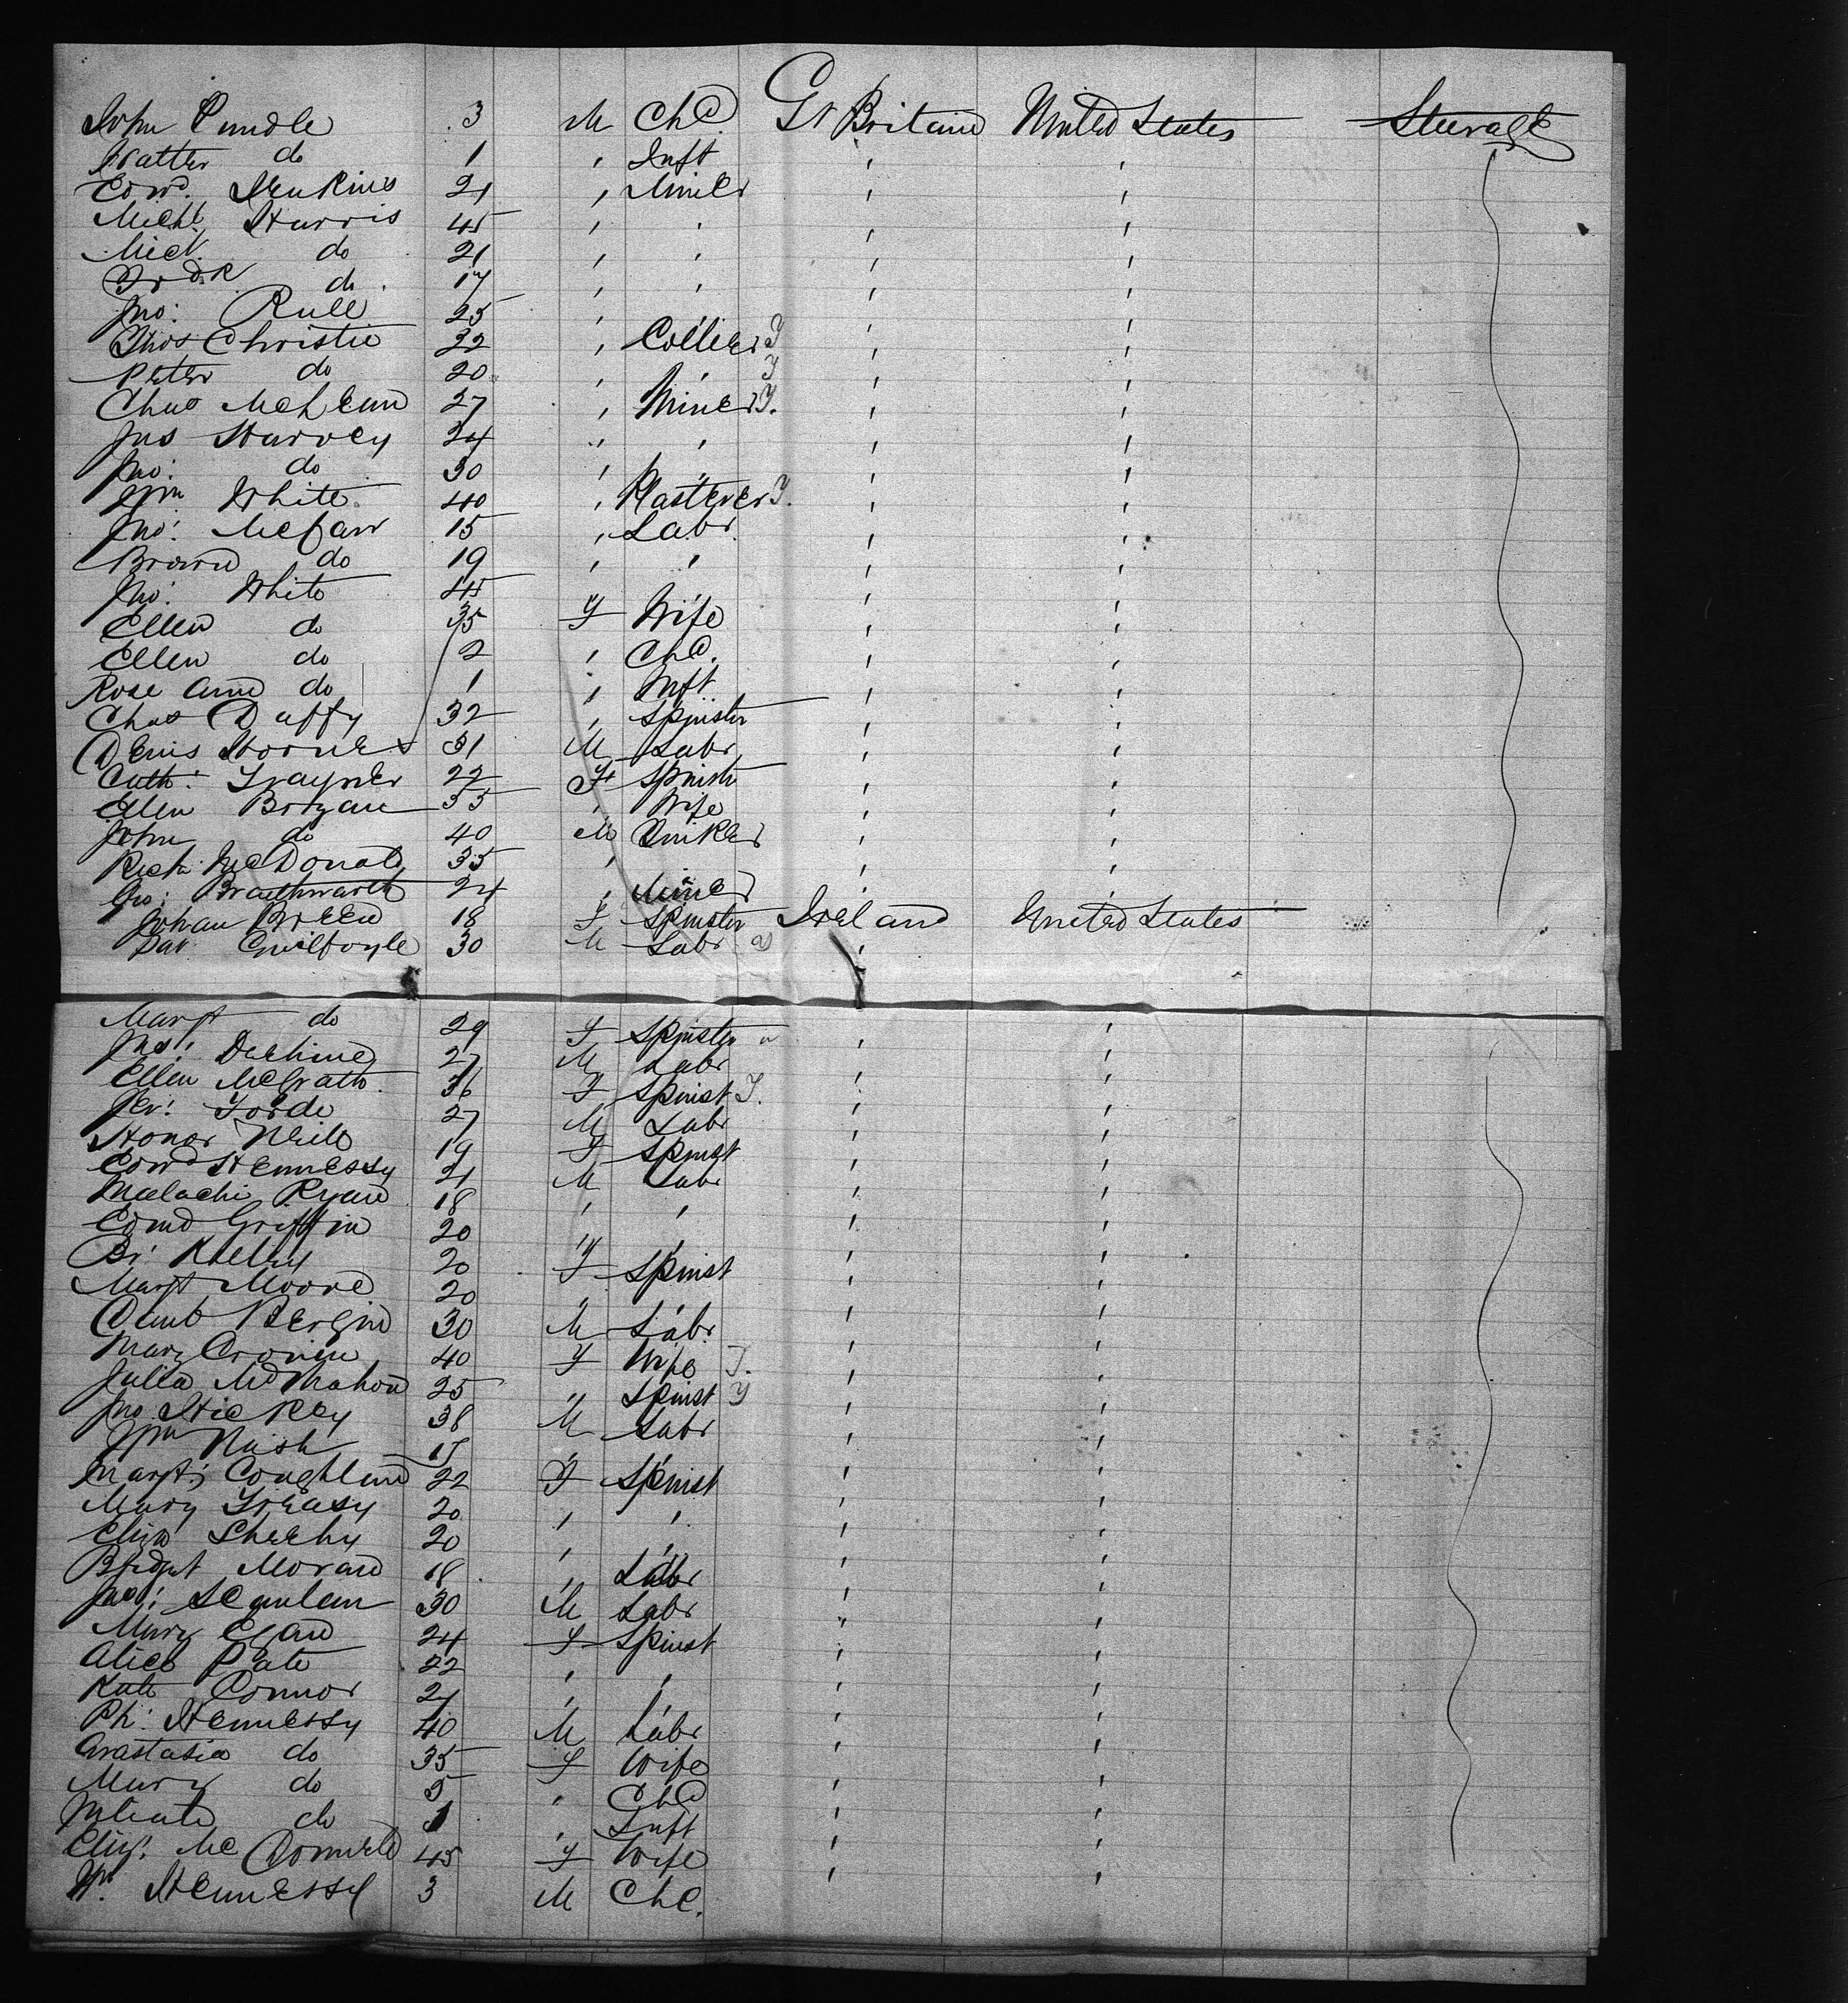 John Pundle 3 M Chd Gt Britain United States Steerage
Walter do 1 " Inft " "
Edwd. Jenkins 21 " Miner " "
Michl. Harris 45 " " " "
Michl. do 21 " " " "
Fredk do 17 " " " "
Jno: Rule 25 " " " "
Thos Christie 22 " Collier " "
Peter do 20 " " " "
Chas McLean 27 " Miner " "
Jas Harvey 24 " " " "
Jno: do 30 " " " "
Wm White 40 " Plasterer " "
Jno: 15 " Labr. " "
do 19 " " " "
Jno: White 45 " " " "
Ellen do 35 F Wife " "
Ellen do 2 " Chd. " "
Rose Ann do 1 " Inft " "
Chas Duffy 32 " Spinster " "
Denis 31 M Labr " "
Cath: Traynor 22 F Spinstr " "
Ellen Brogan 35 " Wife " "
John do 40 M " "
Rich McDonald 35 " " "
Jno: Braithwaith 24 " Miner " "
Johan Breen 18 F Spinster Ireland United States
Pat Guilfoyle 30 M Labr "
Margt do 29 F Spinster " "
27 M Labr " "
Ellen McGrath 36 F Spinst " "
Jer: Forde 27 M Labr " "
Honor Neile 19 F Spinst " "
Edwd Hennessy 21 M Labr " "
Malachi Ryan 18 " " " "
Edmd Griffin 20 " " " "
Br: Kelley 20 F Spinst " "
Margt Moore 20 " " " "
Bergin 30 M Labr " "
Mary Cronin 40 F Wife " "
Julia McMahon 25 " Spinst " "
Jno Hickey 38 M Labr " "
Wm Nash " " " "
Margt: Coughlan 22 F Spinst " "
Mary Treasy 20 " " " "
Eliza Sheehy 20 " " " "
Bridget Moran 18 " Labr " "
Scanlan 30 M Labr " "
Mary Egan 24 F Spinst " "
Alice Pate 22 " " " "
Kate Connor 21 " " " "
Ph: Hennessy 40 M Labr " "
Anastasia do 35 F Wife " "
Mary do 5 " Chd " "
do 1 " Inft " "
Eliz: McDonnell 45 F Wife " "
Wm Hennessy 3 M Chd. " "